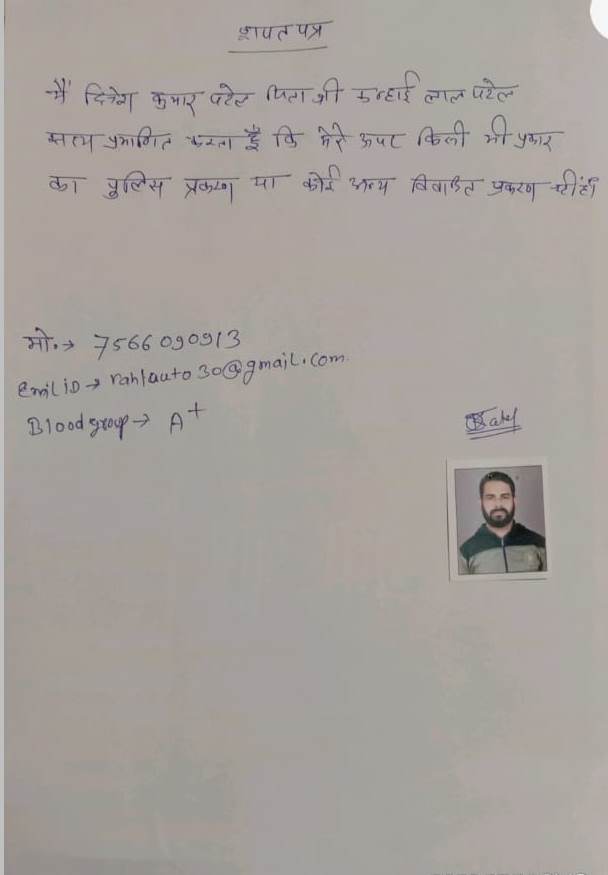 शपत पत्र
मैं दिनेश कुमार पटेल पिता श्री कन्हाई लाल पटेल
सत्य प्रमाणित करता हूँ कि मेरे ऊपर किसी भी प्रकार
का पुलिस प्रकरण या कोई अन्य विवादित प्रकरण नहीं है।
मो.→ 7566090913
Emil iD→ rahlauto30@gmail.com.
Blood group→ A+